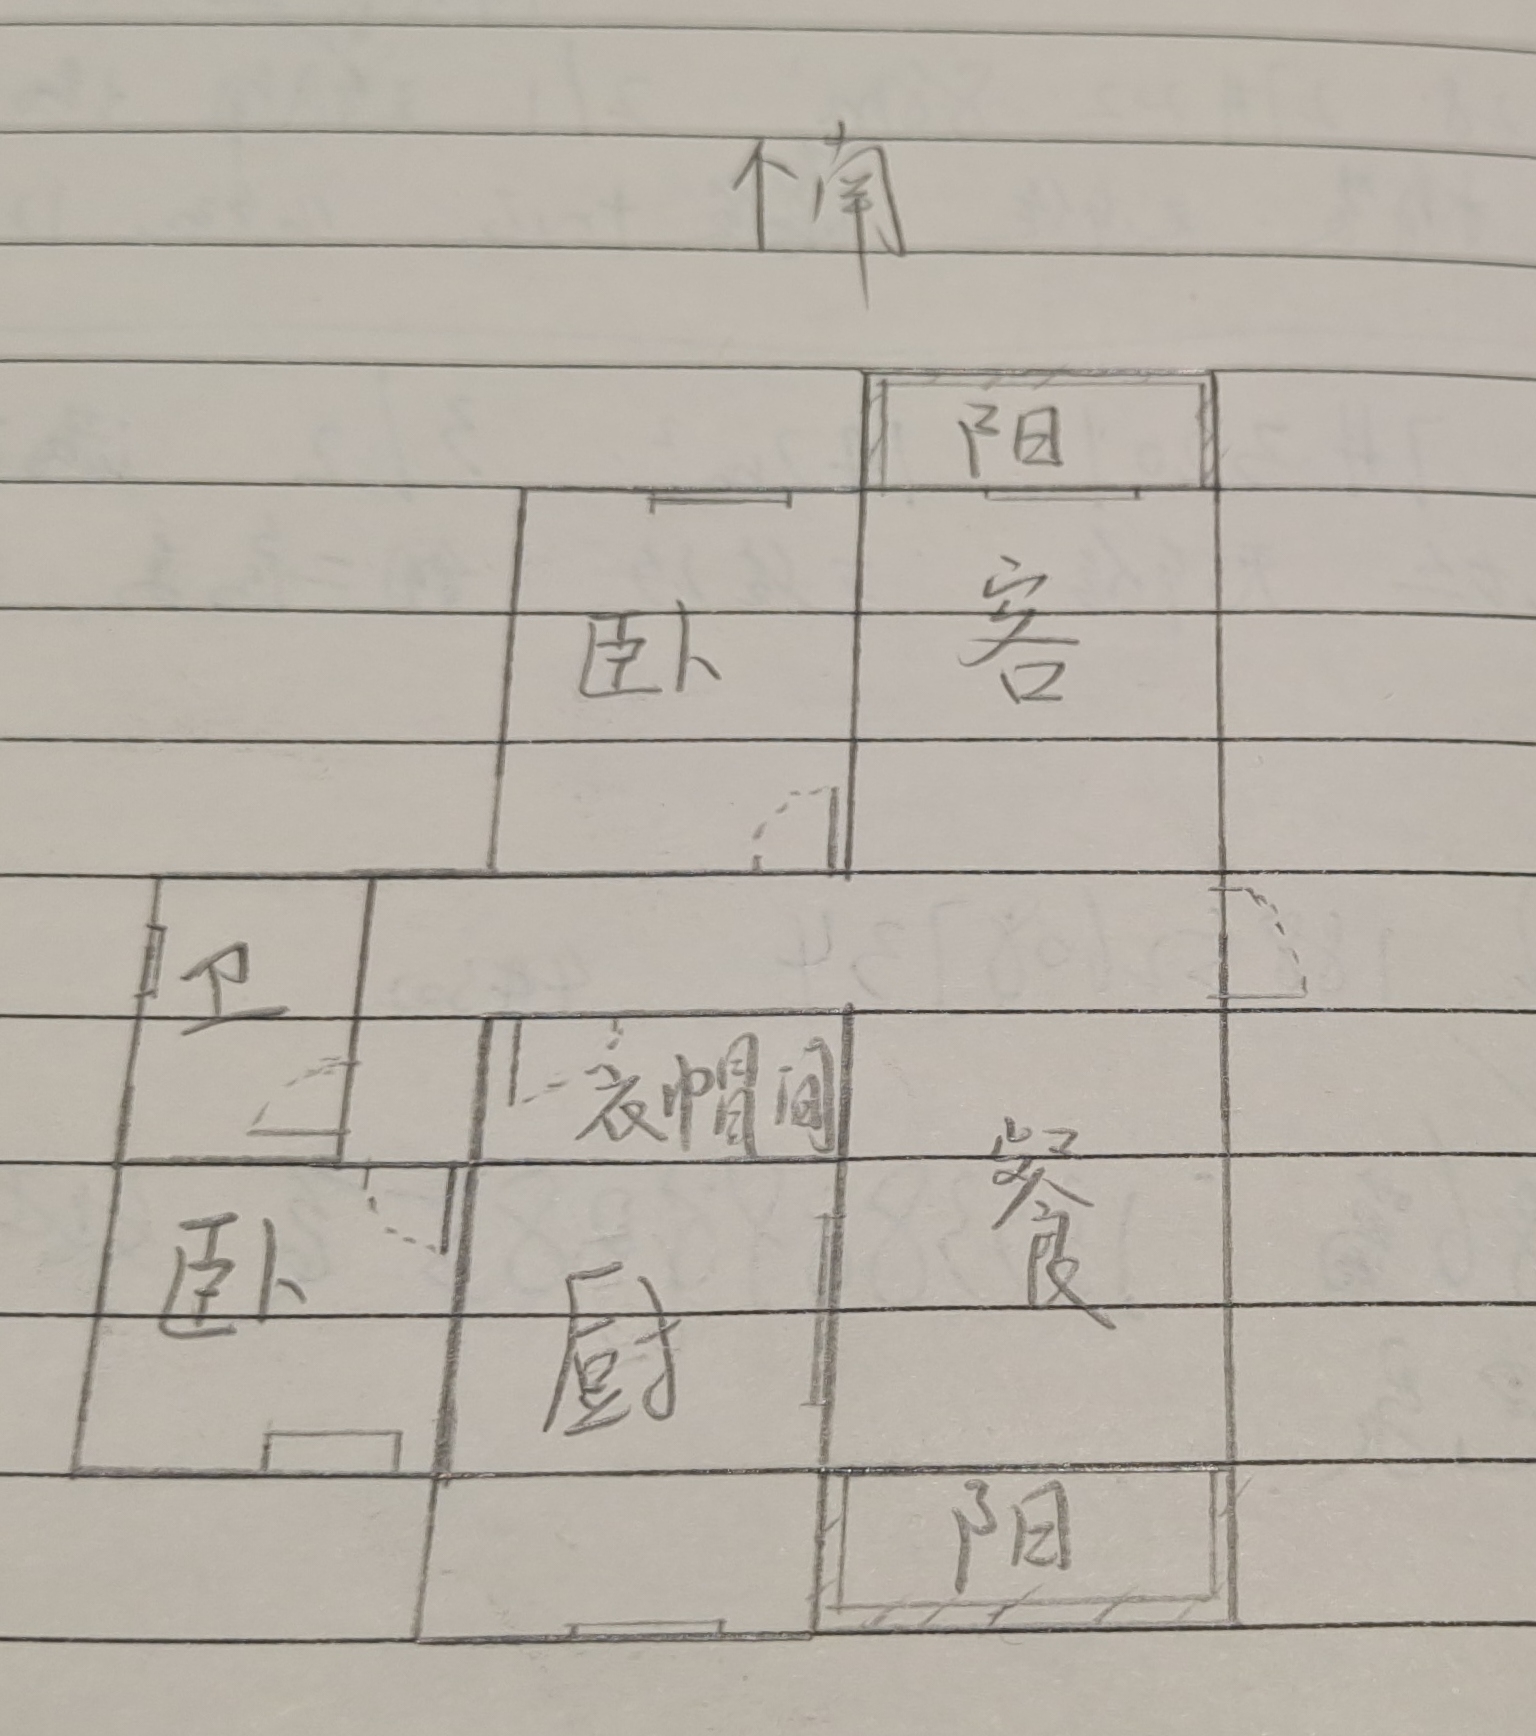 个南
阳
卧
客
卫
衣帽间
餐
卧
厨
阳